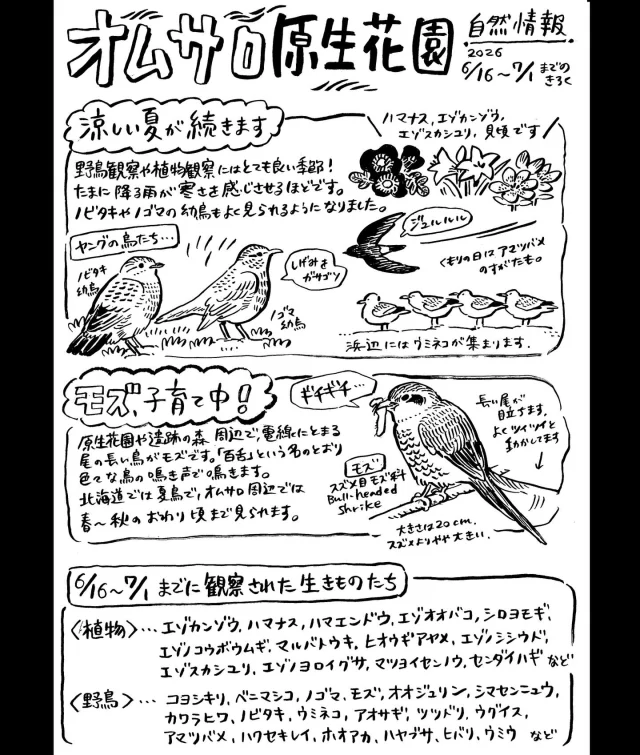 オムサロ原生花園
自然情報
2026
6/16〜7/1までの
きろく
涼しい夏が続きます
ハマナス、エゾカンゾウ、
エゾスカシユリ、見頃です
野鳥観察や植物観察にはとても良い季節！
たまに降る雨が寒さを感じさせるほどです。
ノビタキやノゴマの幼鳥もよく見られるようになりました。
ヤングの鳥たち…
ノビタキ
幼鳥
しげみを
ガサゴソ
ノゴマ
幼鳥
ジュルルルル
くもりの日はアマツバメ
のすがたも。
浜辺にはウミネコが集まります.
モズ、子育て中！
ギチギチ…
原生花園や遺跡の森周辺で、電線にとまる
尾の長い鳥がモズです。「百舌」という名のとおり
色々な鳥の鳴き声で鳴きます。
北海道では夏鳥で、オムサロ周辺では
春〜秋のおわり頃まで見られます。
モズ
スズメ目モズ科
Bull-headed
Shrike
長い尾が
目立ちます。
よくツイツイと
動かしてます
大きさは20cm.
スズメよりやや大きい.
6/16〜7/1までに観察された生きものたち
〈植物〉…エゾカンゾウ、ハマナス、ハマエンドウ、エゾオオバコ、シロヨモギ、
エゾノコウボウムギ、マルバトウキ、ヒオウギアヤメ、エゾノシシウド、
エゾスカシユリ、エゾノヨロイグサ、マツヨイセンノウ、センダイハギなど
〈野鳥〉…コヨシキリ、ベニマシコ、ノゴマ、モズ、オオジュリン、シマセンニュウ、
カワラヒワ、ノビタキ、ウミネコ、アオサギ、ツツドリ、ウグイス、
アマツバメ、ハクセキレイ、ホオアカ、ハヤブサ、ヒバリ、ウミウ など